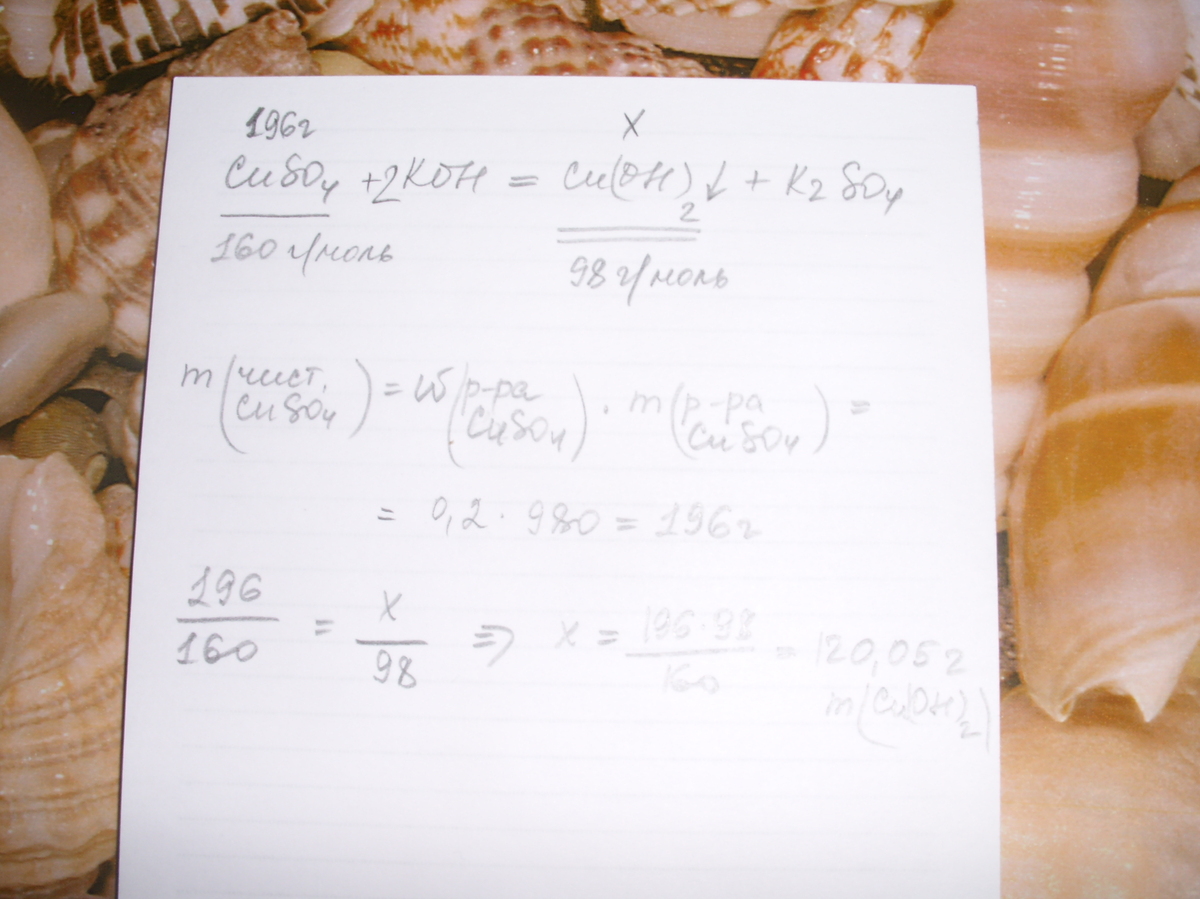 196г X
CuSO4 + 2KOH = Cu(OH)2↓ + K2SO4
160 г/моль 98 г/моль
m(чист. CuSO4) = ω(р-ра CuSO4) · m(р-ра CuSO4) =
= 0,2 · 980 = 196г
196/160 = X/98 ⇒ X = 196·98/160 = 120,05г
m(Cu(OH)2)